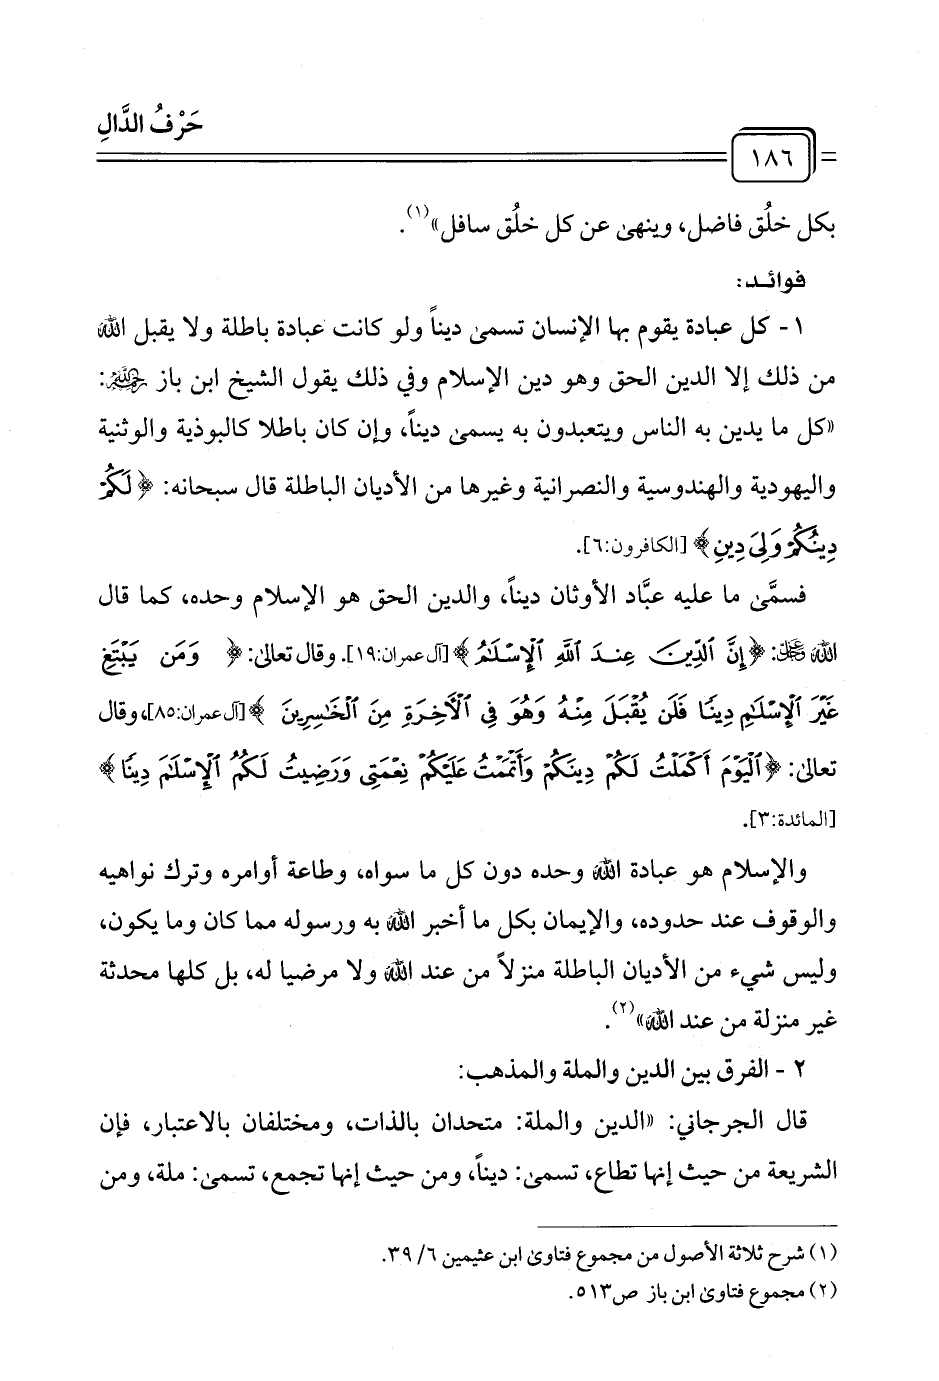 حَرْفُ الدَّالِ
١٨٦
بكل خلُق فاضل، وينهىٰ عن كل خلُق سافل»(١).
فوائـد:
١- كل عبادة يقوم بها الإنسان تسمىٰ ديناً ولو كانت عبادة باطلة ولا يقبل الله
من ذلك إلا الدين الحق وهو دين الإسلام وفي ذلك يقول الشيخ ابن باز رحمه الله:
«كل ما يدين به الناس ويتعبدون به يسمىٰ ديناً، وإن كان باطلا كالبوذية والوثنية
واليهودية والهندوسية والنصرانية وغيرها من الأديان الباطلة قال سبحانه: ﴿لَكُمۡ
دِينُكُمۡ وَلِيَ دِينِ﴾ [الكافرون:٦].
فسمَّىٰ ما عليه عبَّاد الأوثان ديناً، والدين الحق هو الإسلام وحده، كما قال
الله ﷻ: ﴿إِنَّ ٱلدِّينَ عِندَ ٱللَّهِ ٱلۡإِسۡلَٰمُ﴾ [آل عمران:١٩]. وقال تعالىٰ: ﴿وَمَن يَبۡتَغِ
غَيۡرَ ٱلۡإِسۡلَٰمِ دِينٗا فَلَن يُقۡبَلَ مِنۡهُ وَهُوَ فِي ٱلۡأٓخِرَةِ مِنَ ٱلۡخَٰسِرِينَ﴾ [آل عمران:٨٥]، وقال
تعالىٰ: ﴿ٱلۡيَوۡمَ أَكۡمَلۡتُ لَكُمۡ دِينَكُمۡ وَأَتۡمَمۡتُ عَلَيۡكُمۡ نِعۡمَتِي وَرَضِيتُ لَكُمُ ٱلۡإِسۡلَٰمَ دِينٗا﴾
[المائدة:٣].
والإسلام هو عبادة الله وحده دون كل ما سواه، وطاعة أوامره وترك نواهيه
والوقوف عند حدوده، والإيمان بكل ما أخبر الله به ورسوله مما كان وما يكون،
وليس شيء من الأديان الباطلة منزلاً من عند الله ولا مرضيا له، بل كلها محدثة
غير منزلة من عند الله»(٢).
٢ - الفرق بين الدين والملة والمذهب:
قال الجرجاني: «الدين والملة: متحدان بالذات، ومختلفان بالاعتبار، فإن
الشريعة من حيث إنها تطاع، تسمىٰ: ديناً، ومن حيث إنها تجمع، تسمىٰ: ملة، ومن
(١) شرح ثلاثة الأصول من مجموع فتاوىٰ ابن عثيمين ٦/ ٣٩.
(٢) مجموع فتاوىٰ ابن باز ص٥١٣.